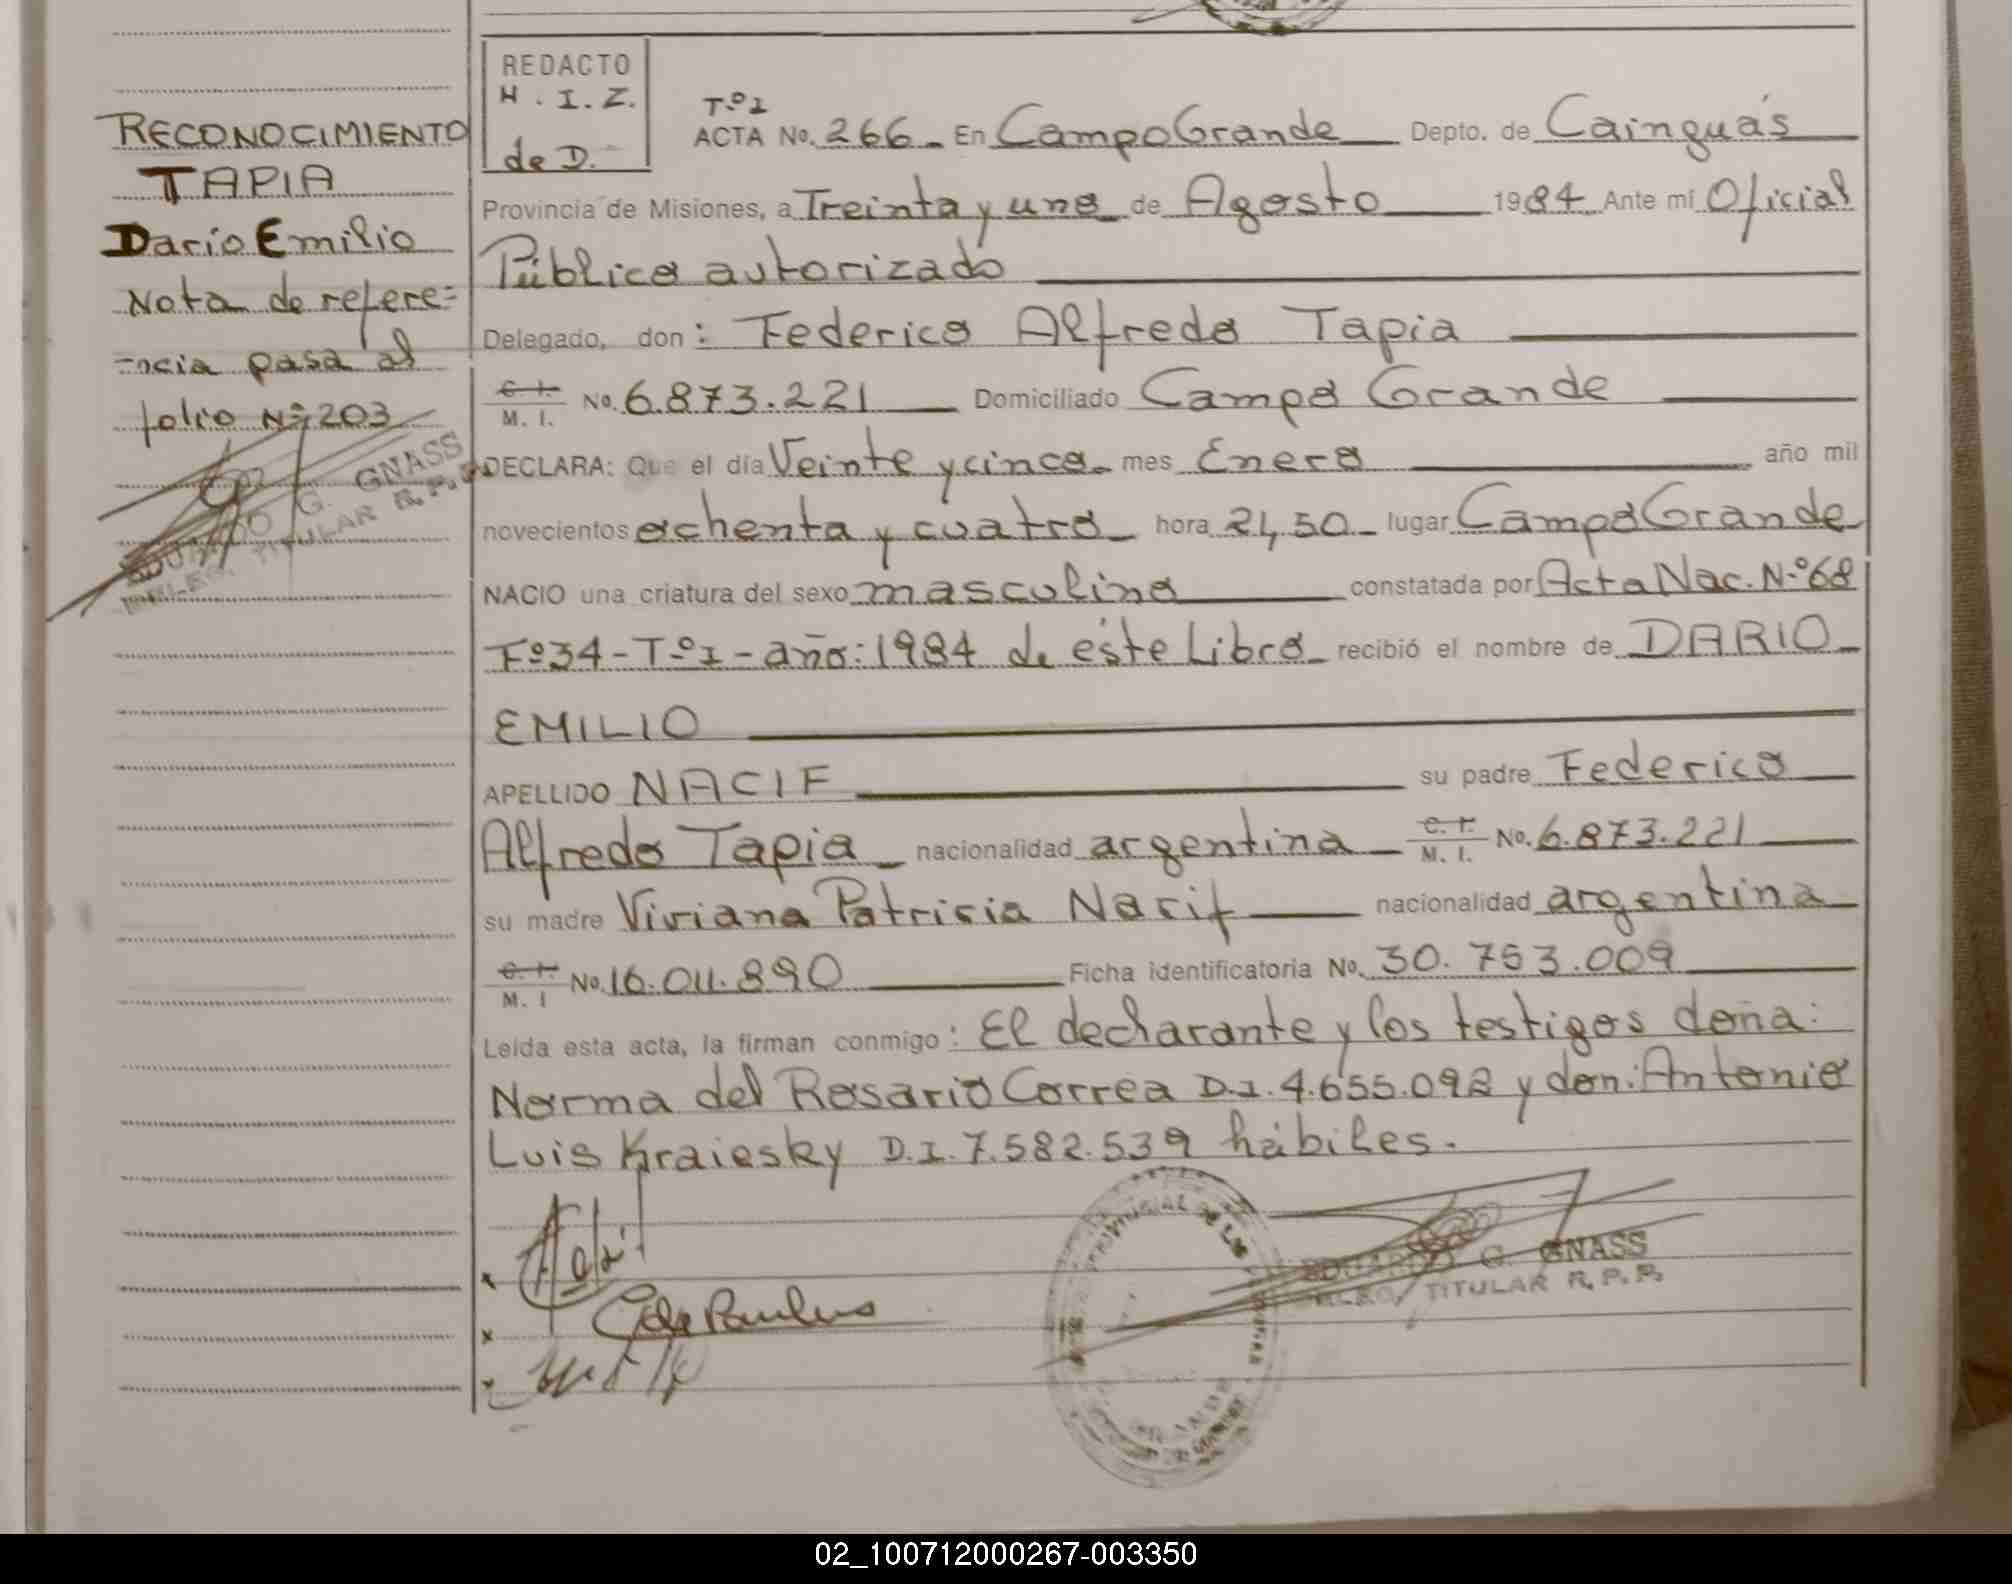 RECONOCIMIENTO
TAPIA
Darío Emilio
Nota de refere=
=ncia pasa al
folio Nº 203
GNASS
TITULAR R.P.P.
REDACTO
H. I. Z.
de D.
Tº I
ACTA No. 266 En Campo Grande Depto. de Cainguás
Provincia de Misiones, a Treinta y uno de Agosto 1984 Ante mí Oficial
Público autorizado
Delegado, don: Federico Alfredo Tapia
C. I. / M. I. No. 6.873.221 Domiciliado Campo Grande
DECLARA: Que el día Veinte y cinco mes Enero año mil
novecientos ochenta y cuatro hora 21,50 lugar Campo Grande
NACIO una criatura del sexo masculino constatada por Acta Nac. Nº 68
Fº 34 - Tº I - año: 1984 de éste Libro recibió el nombre de DARIO
EMILIO
APELLIDO NACIF su padre Federico
Alfredo Tapia nacionalidad argentina C. I. / M. I. No. 6.873.221
su madre Viviana Patricia Nacif nacionalidad argentina
C. I. / M. I No. 16.011.890 Ficha identificatoria No. 30.753.009
Leída esta acta, la firman conmigo: El decharante y los testigos doña:
Norma del Rosario Correa D.I. 4.655.092 y don: Antonio
Luis Kraiesky D.I. 7.582.539 hábiles.
EDUARDO G. GNASS
TITULAR R.P.P.
02_100712000267-003350